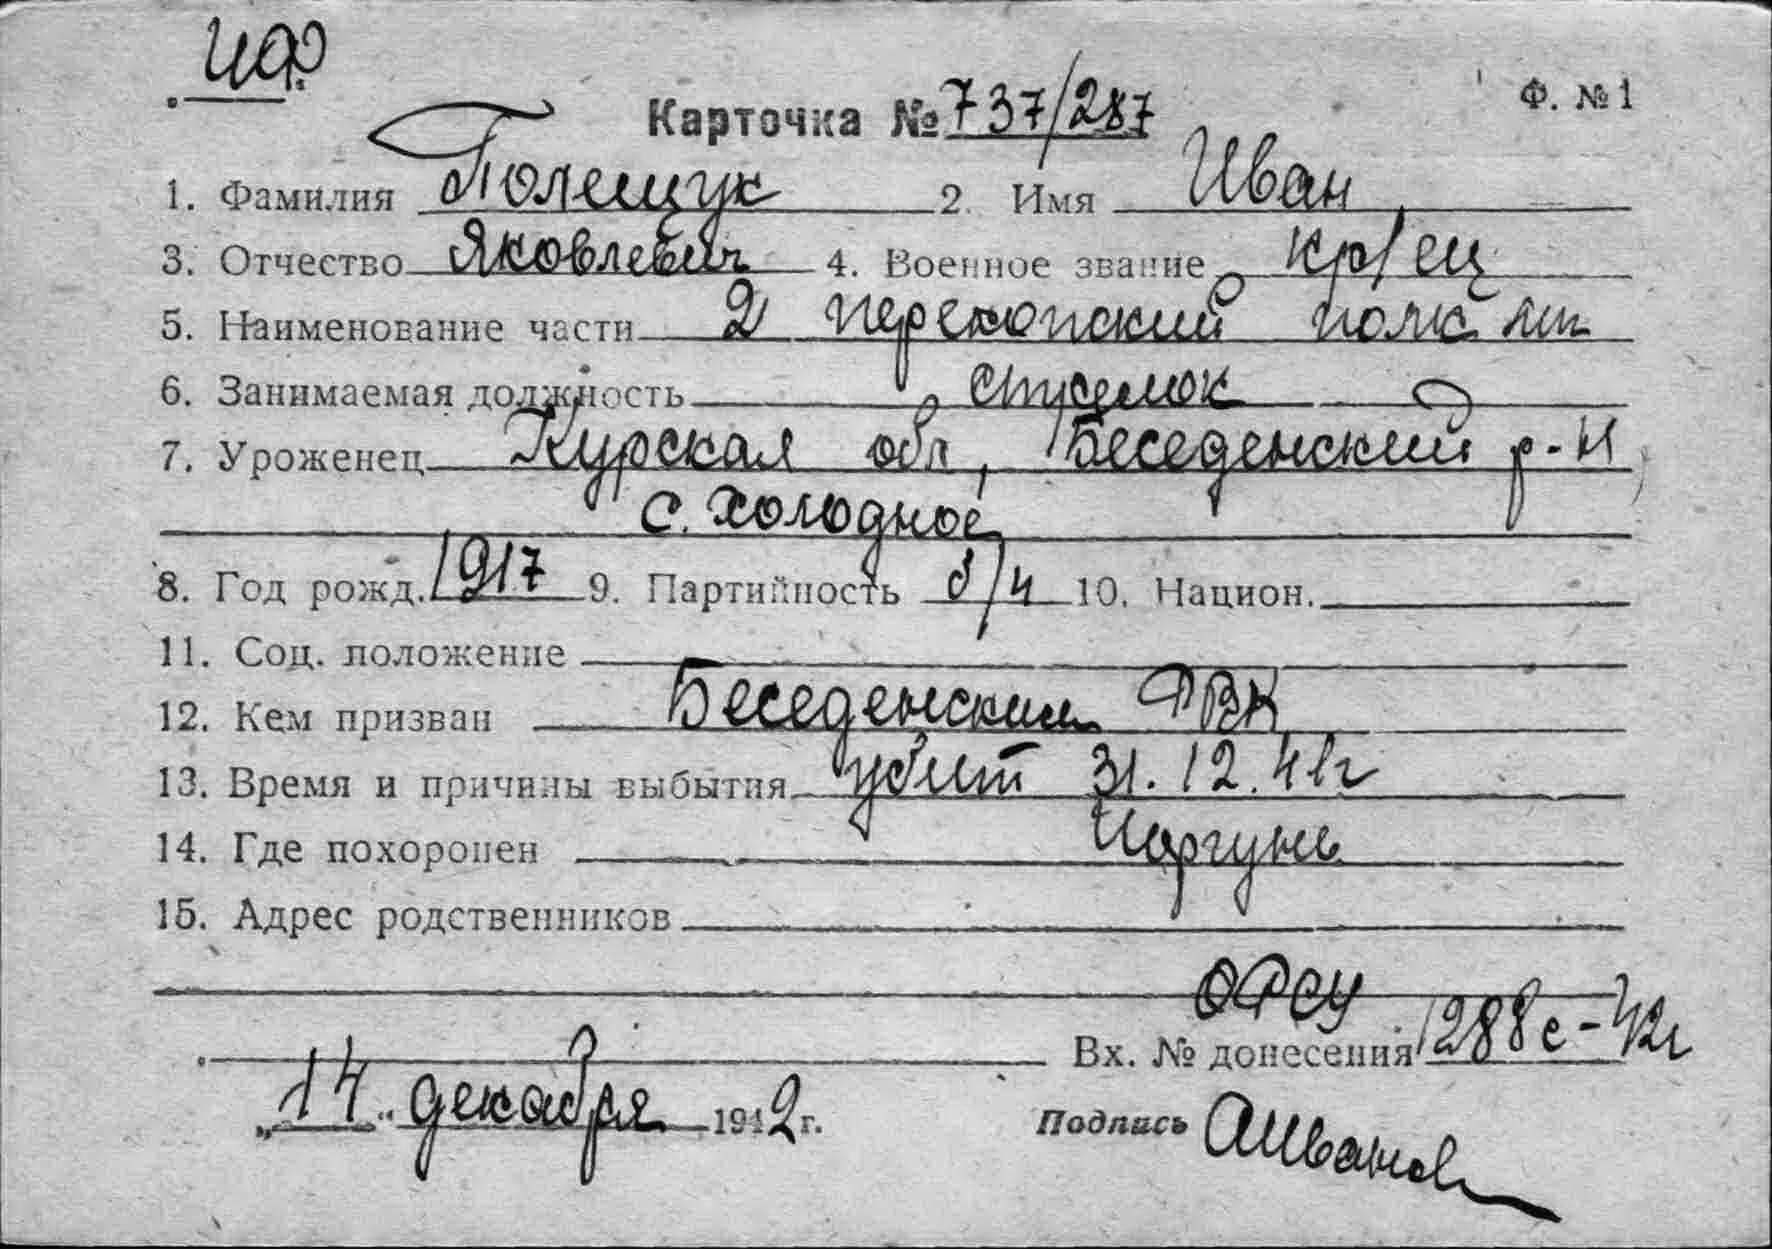 ЧФ
Карточка № 737/287
Ф. № 1
1. Фамилия Полещук 2. Имя Иван
3. Отчество Яковлевич 4. Военное звание кр/ец
5. Наименование части 2 перекопский полк мп
6. Занимаемая должность стрелок
7. Уроженец Курская обл, Беседенский р-н
с. Холодное
8. Год рожд. 1917 9. Партийность б/п 10. Национ.
11. Соц. положение
12. Кем призван Беседенским РВК
13. Время и причины выбытия убит 31.12.41г
14. Где похоронен Чоргунь
15. Адрес родственников
ОРСУ
Вх. № донесения 1288с-42г
„14“ декабря 1942 г.
Подпись